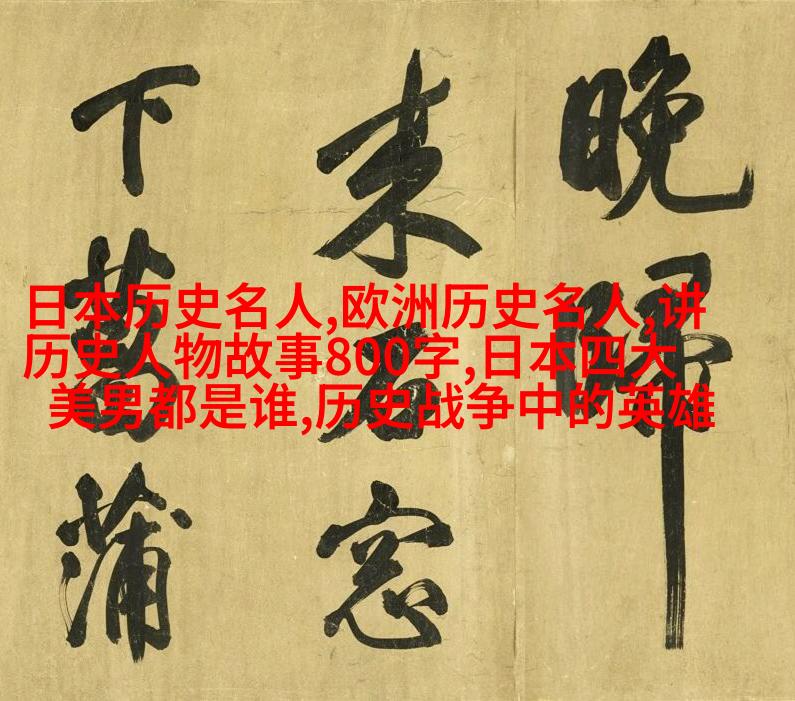 晚歸
来石窓
下菖蒲
日本历史名人,欧洲历史名人,讲
历史人物故事800字,日本四大
美男都是谁,历史战争中的英雄